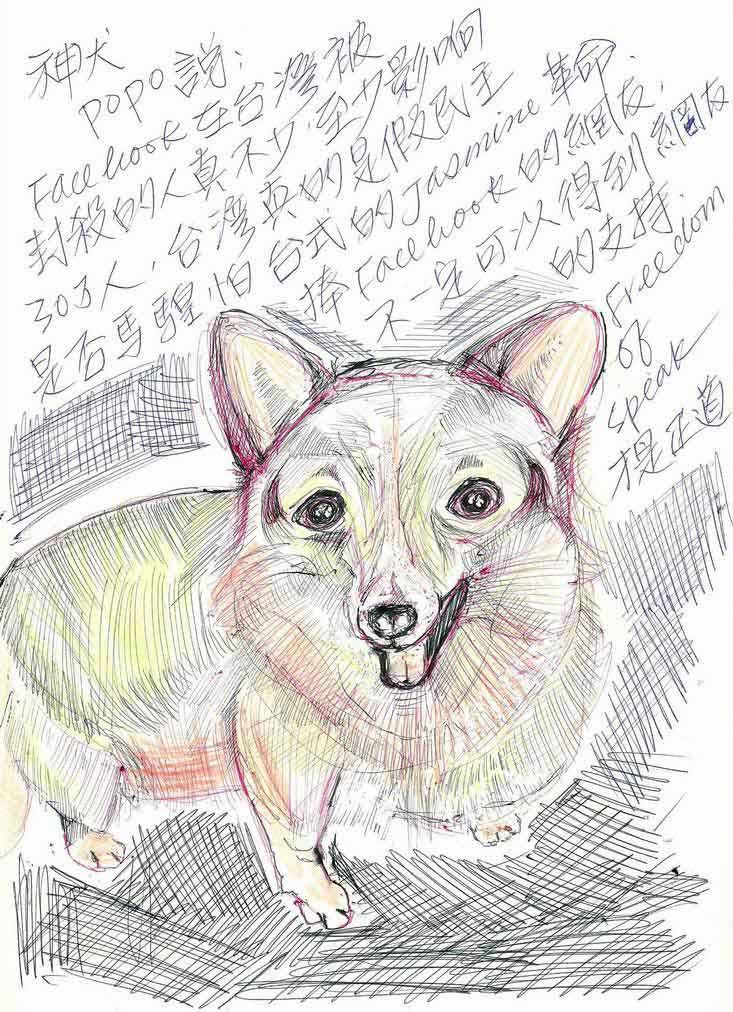 神犬
POPO 說:
Facebook在台灣被
封殺的人真不少,至少影响
30万人,台灣真的是假民主
是否馬騜怕台式的Jasmine革命.
捧Facebook的網友,
不一定可以得到網友
的支持.
Freedom
of
speak
才是正道